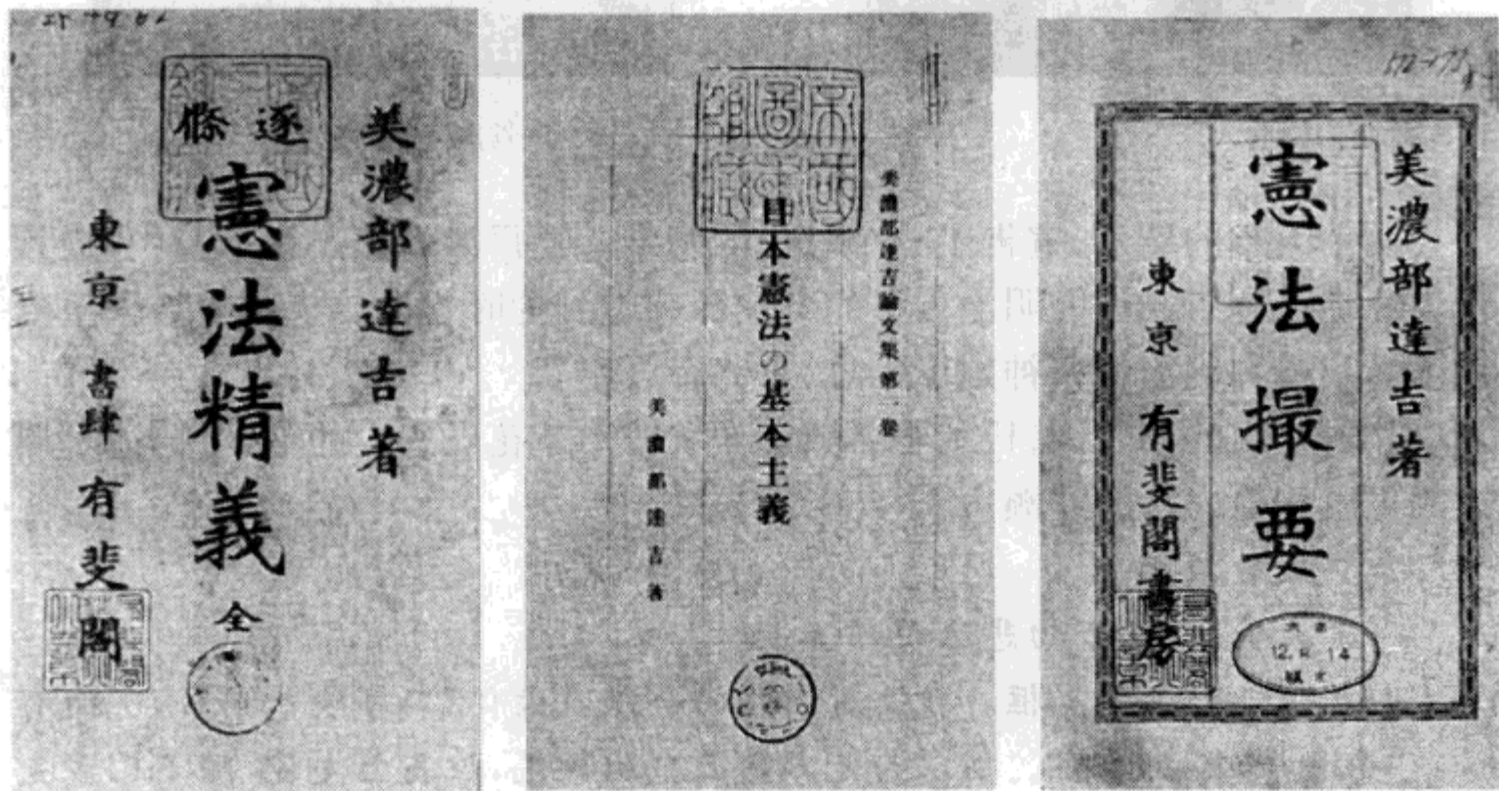 美濃部達吉著
逐條
憲法精義 全
東京 書肆 有斐閣
美濃部達吉論文集第一卷
日本憲法の基本主義
美濃部達吉著
美濃部達吉著
憲法撮要
東京 有斐閣書房
12. 8. 14